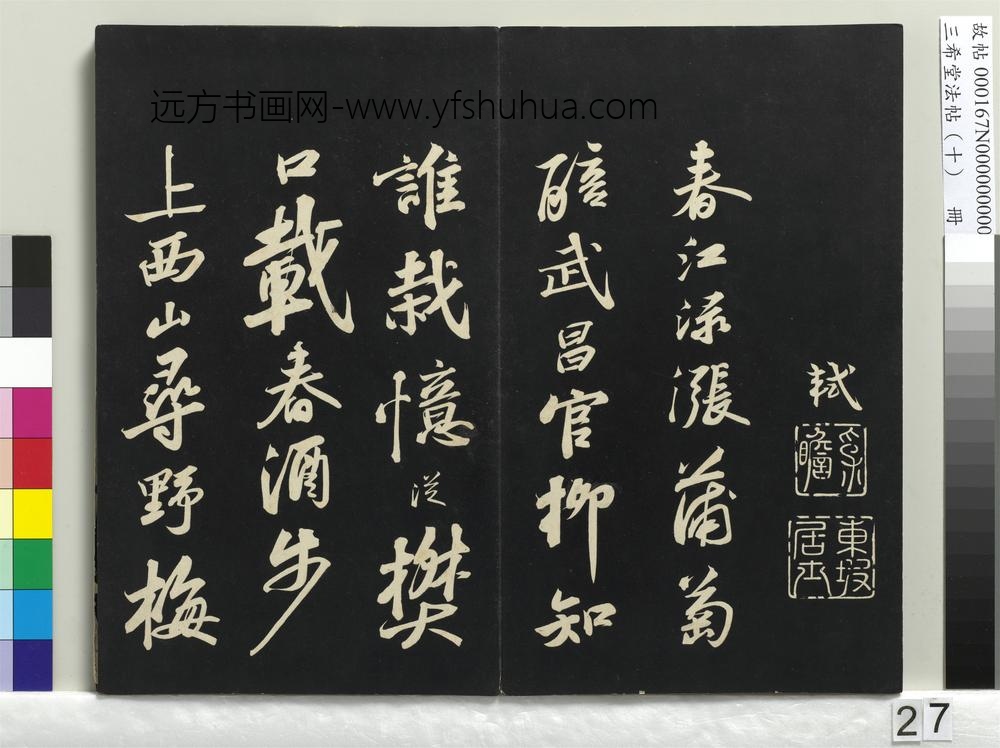 軾
子瞻
東坡居士
春江淥漲蒲萄
醅武昌官柳知
誰栽憶從樊
口載春酒步
上西山尋野梅
远方书画网-www.yfshuhua.com
故帖 000167N000000000
三希堂法帖（十） 冊
27